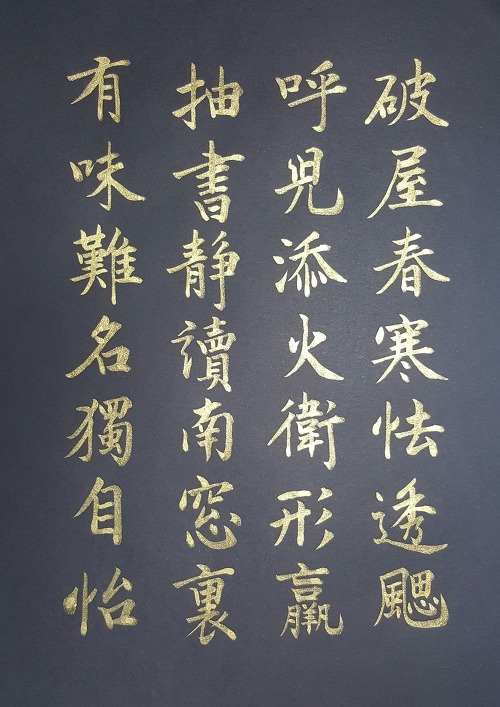 破屋春寒怯透颸
呼兒添火衛形羸
抽書靜讀南窓裏
有味難名獨自怡